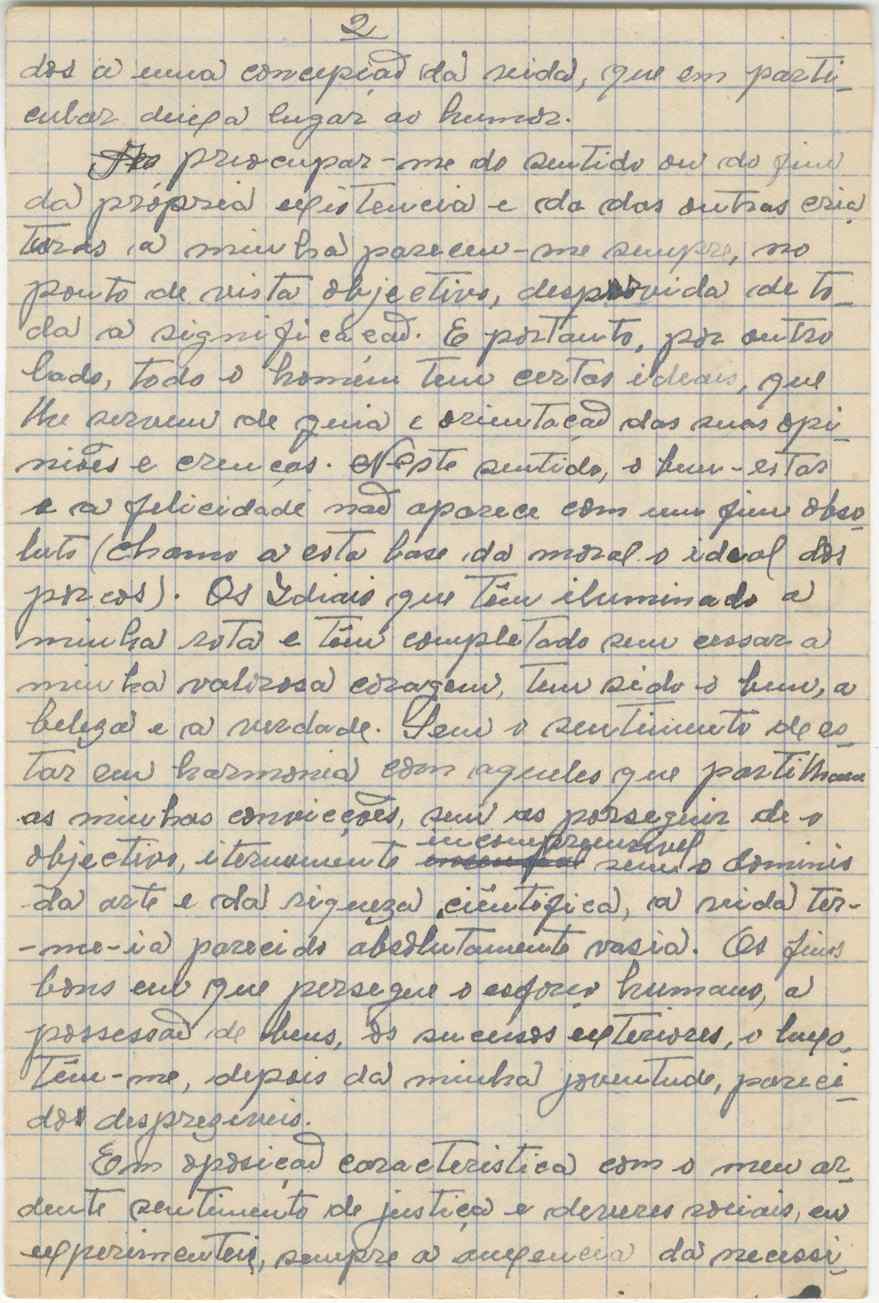 2
dos a uma concepção da vida, que em parti-
cular deixa lugar ao humor.
preocupar-me do sentido ou do fim
da própria existencia e da das outras cria
turas a minha pareceu-me sempre, no
ponto de vista objectivo, desprovida de to-
da a significação. E portanto, por outro
lado, todo o homem tem certos ideais, que
lhe servem de guia e orientação das suas opi-
niões e crenças. Neste sentido, o bem-estar
e a felicidade não aparece com um fim abso
luto (chamo a esta base da moral o ideal dos
porcos). Os Idiais que têm iluminado a
minha rota e têm completado sem cessar a
minha valirosa coragem, tem sido o bem, a
beleza e a verdade. Sem o sentimento de es-
tar em harmonia com aqueles que partilham
as minhas convicções, sem as porseguir de o
objectivo, iternamente incomprensivel sem o dominio
da arte e da riqueza ciêntifica, a vida ter-
-me-ia parecido absolutamente vasia. Os fins
bons em que persegue o esforço humano, a
possessão de bens, os sucessos exteriores, o luxo,
têm-me, depois da minha joventude, pareci-
dos despreziveis.
Em oposição caracteristica com o meu ar-
dente sentimento de justiça e deveres sociais, eu
experimentei, sempre a auxencia da necessi-